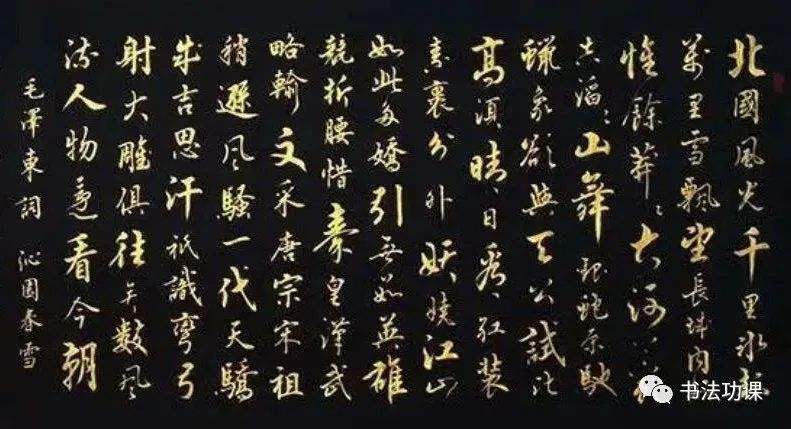 北國風光千里冰封
萬里雪飄望長城内
惟餘莽〻大河上下
失滔〻山舞銀蛇原馳
蠟象欲與天公試比
高須晴日看紅裝
素裹分外妖嬈江山
如此多嬌引無英雄
競折腰惜秦皇漢武
略輸文采唐宗宋祖
稍遜風騷一代天驕
成吉思汗祇識彎弓
射大雕俱往矣數風
流人物還看今朝
毛澤東詞 沁園春雪
书法功课